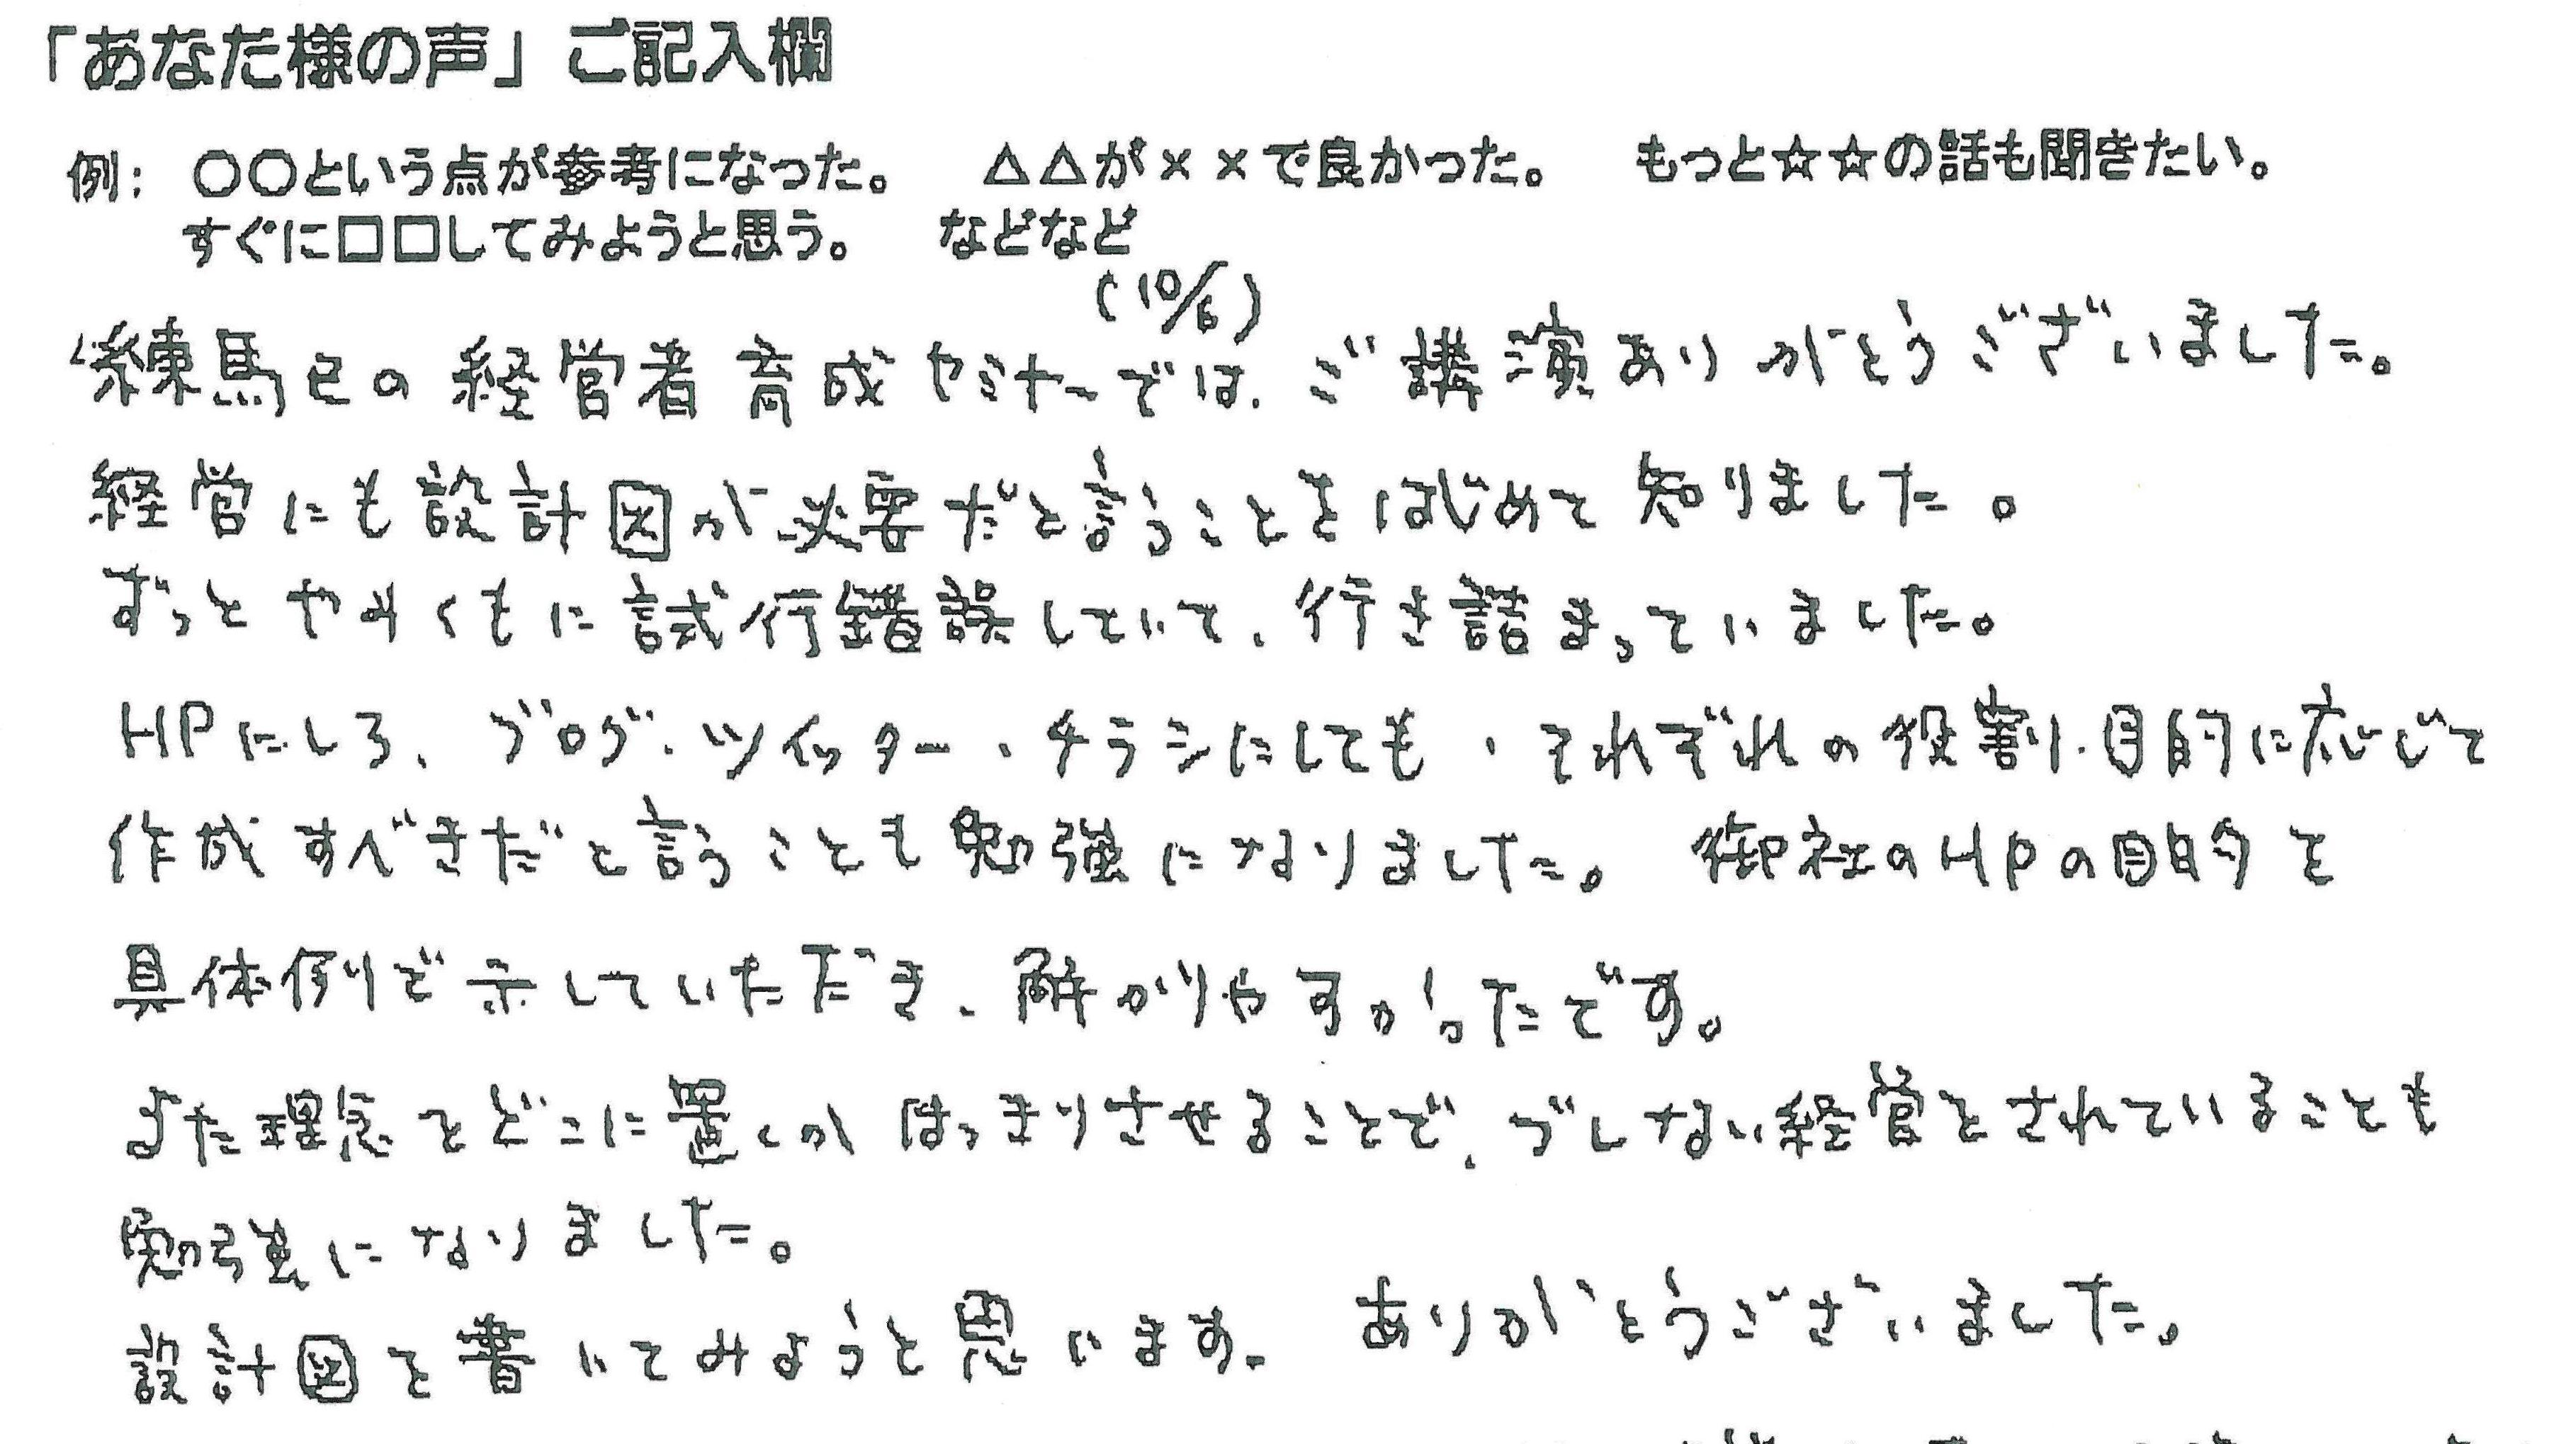 「あなた様の声」ご記入欄
例： 〇〇という点が参考になった。 △△が××で良かった。 もっと☆☆の話も聞きたい。
すぐに□□してみようと思う。 などなど
(10/6)
練馬区の経営者育成セミナーでは、ご講演ありがとうございました。
経営にも設計図が必要だと言うことをはじめて知りました。
ずっとやみくもに試行錯誤していて、行き詰まっていました。
HPにしろ、ブログ、ツイッター、チラシにしても、それぞれの役割・目的に応じて
作成すべきだと言うことも勉強になりました。 御社のHPの目的を
具体例で示していただき、解かりやすかったです。
また理念をどこに置くのかはっきりさせることで、ブレない経営をされていることも
勉強になりました。
設計図を書いてみようと思います。 ありがとうございました。